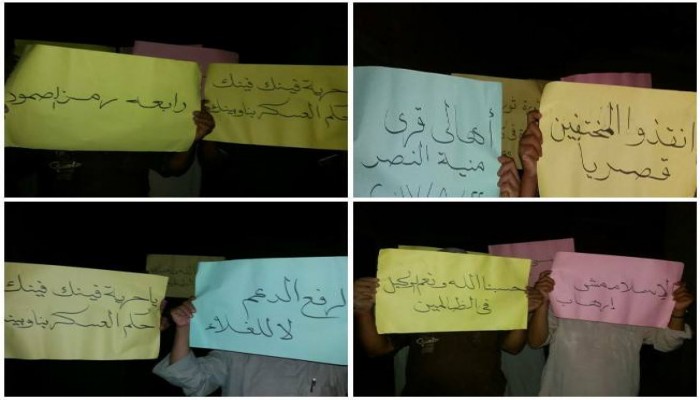 رابعه رمز اصمود
حرية فينك فينك
حكم العسكر بناوبينك
أهالى قرى
منية النصر
انقذوا المختفين
قصريا
ياحرية فينك فينك
حكم العسكر
لرفع الدعم
لا للغلاء
حسبنا الله ونعم وكيل
فى الظالمين
لإسلام مش
إرهاب